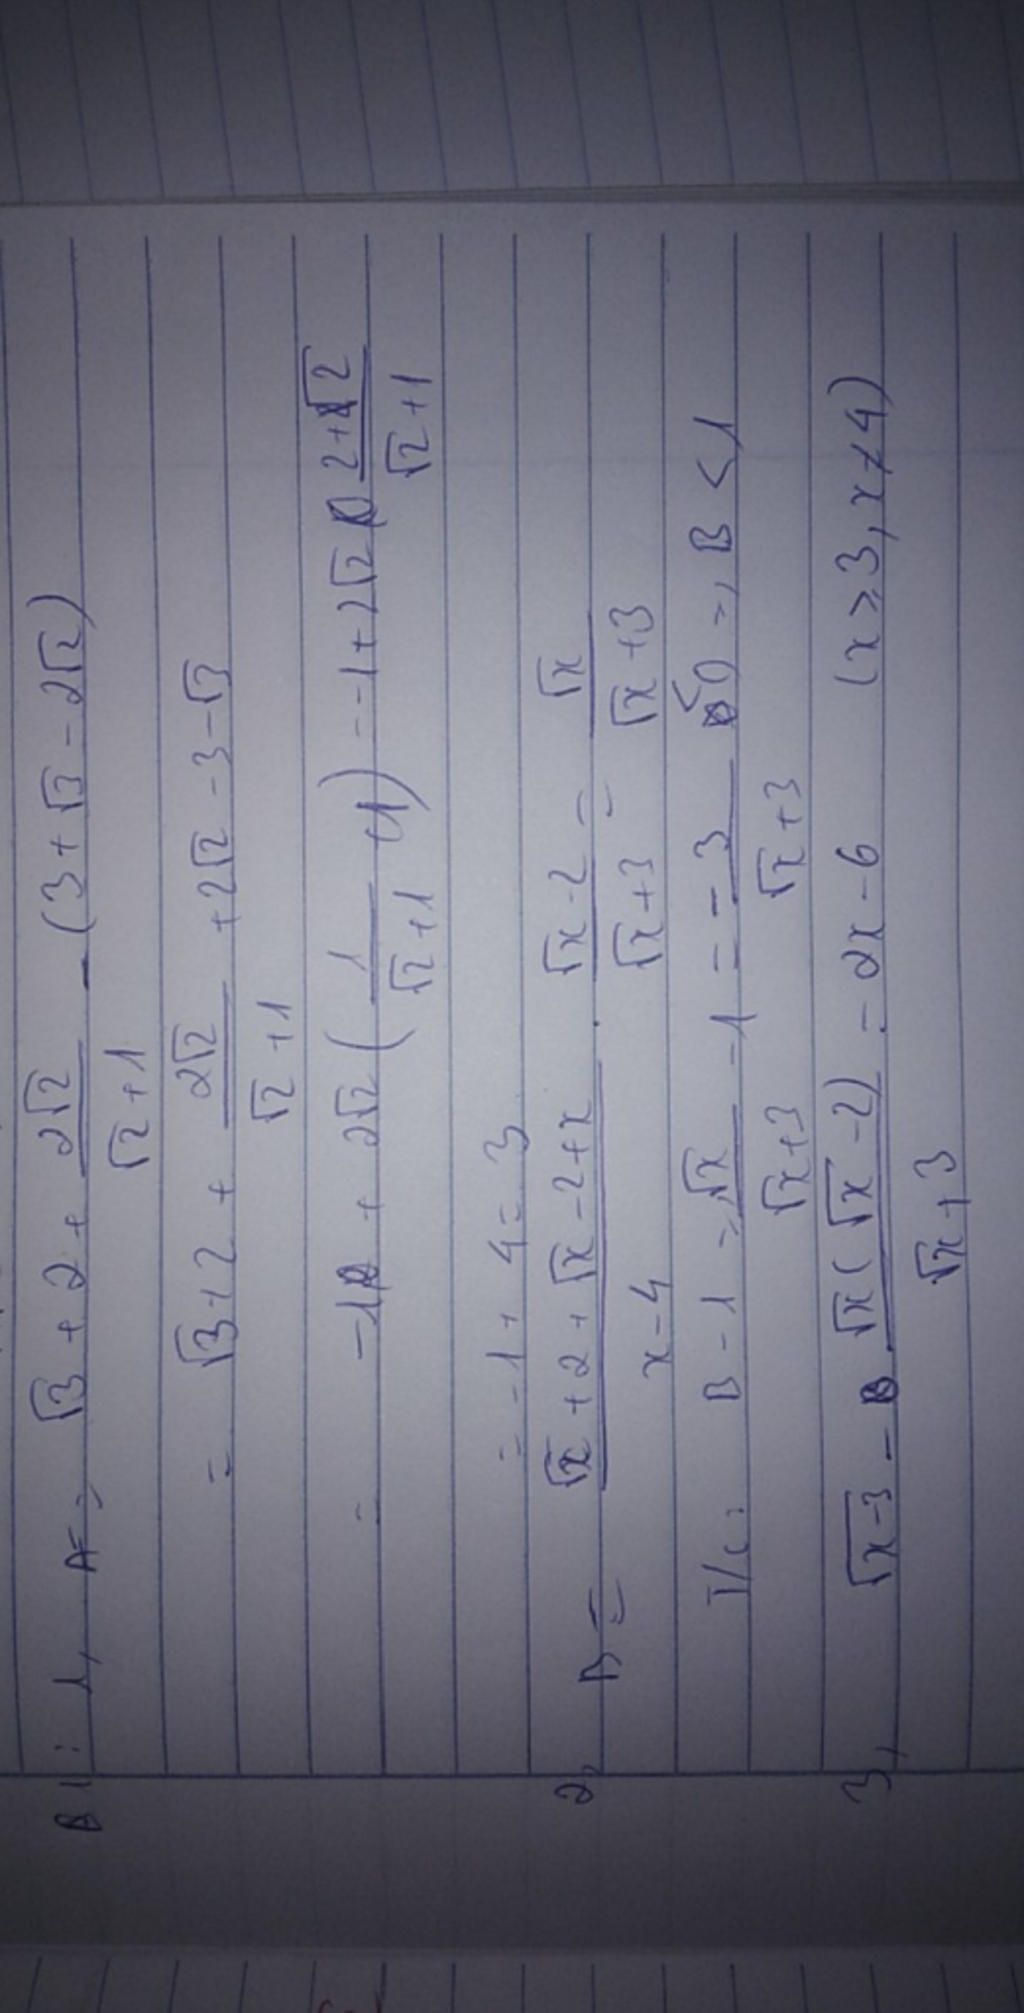 B1: 1, A = √3 + 2 + 2√2/(√2 + 1) - (3 + √3 - 2√2)
= √3 + 2 + 2√2/(√2 + 1) + 2√2 - 3 - √3
= -1 + 2√2 (1/(√2 + 1) + 1) = -1 + 2√2 · (2+√2)/(√2 + 1)
= -1 + 4 = 3
2, B = (√x + 2 + √x - 2 + x)/(x - 4) · (√x - 2)/(√x + 3) = √x/(√x + 3)
T/c: B - 1 = √x/(√x + 3) - 1 = -3/(√x + 3) < 0 =, B < 1
3, √(x-3) - √x(√x - 2)/(√x + 3) = 2x - 6 (x ⩾ 3, x ≠ 4)